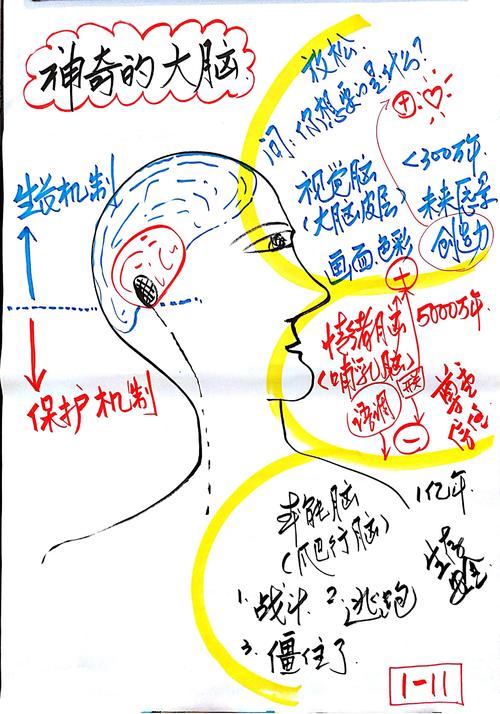 神奇的大脑
放松.
问:你想要的是什么?
+
<300万年
视觉脑
(大脑皮层)
画面.色彩
未来愿景
创造力
生长机制
保护机制
+
5000万年
情绪脑
(哺乳脑)
语调
尊重
信任
-
1亿年.
本能脑
(爬行脑)
生存
安全
1.战斗. 2.逃跑
3.僵住了.
1-11